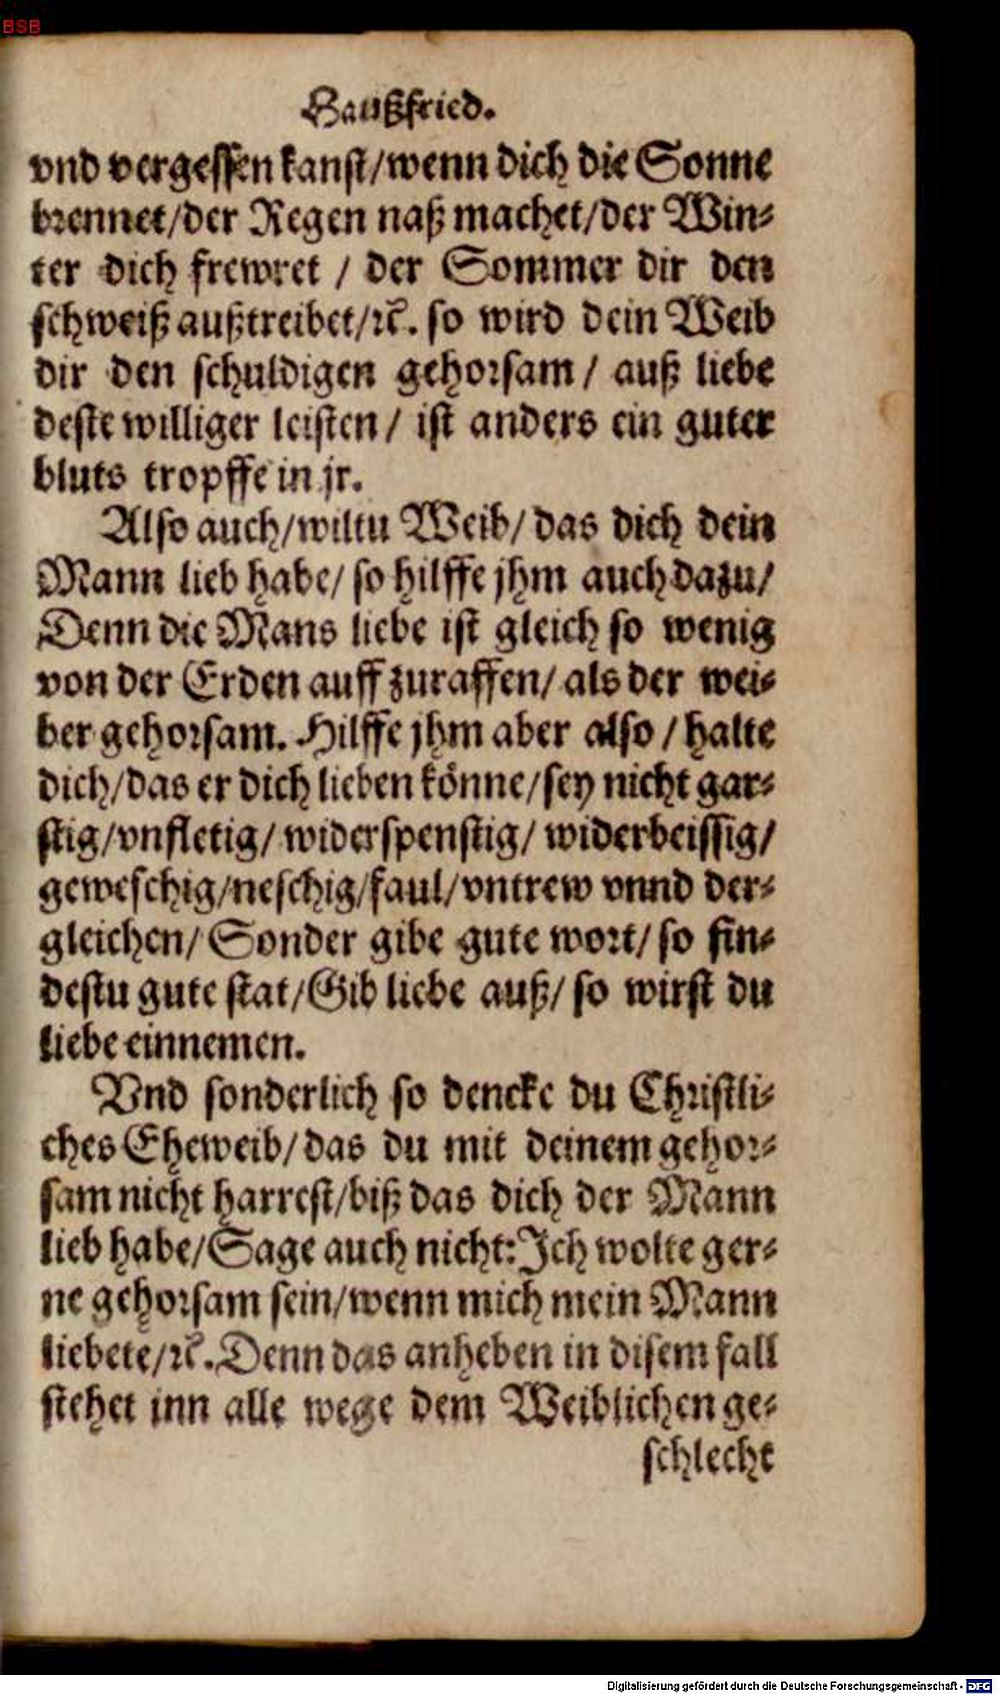 BSB
Haußfried.
vnd vergessen kanst/wenn dich die Sonne
brennet/der Regen naß machet/der Win⸗
ter dich frewret / der Sommer dir den
schweiß außtreibet/ꝛc̃. so wird dein Weib
dir den schuldigen gehorsam / auß liebe
deste williger leisten / ist anders ein guter
bluts tropffe in jr.
Also auch/wiltu Weib/ das dich dein
Mann lieb habe/ so hilffe jhm auch dazu/
Denn die Mans liebe ist gleich so wenig
von der Erden auff zuraffen/ als der wei⸗
ber gehorsam. Hilffe jhm aber also / halte
dich/das er dich lieben könne/sey nicht gar⸗
stig/vnfletig/ widerspenstig/ widerbeissig/
geweschig/neschig/faul/vntrew vnnd der⸗
gleichen/ Sonder gibe gute wort/ so fin⸗
destu gute stat/Gib liebe auß/ so wirst du
liebe einnemen.
Vnd sonderlich so dencke du Christli⸗
ches Eheweib/das du mit deinem gehor⸗
sam nicht harrest/biß das dich der Mann
lieb habe/Sage auch nicht: Ich wolte ger⸗
ne gehorsam sein/wenn mich mein Mann
liebete/ꝛc̃. Denn das anheben in disem fall
stehet inn alle wege dem Weiblichen ge⸗
schlecht
Digitalisierung gefördert durch die Deutsche Forschungsgemeinschaft - DFG